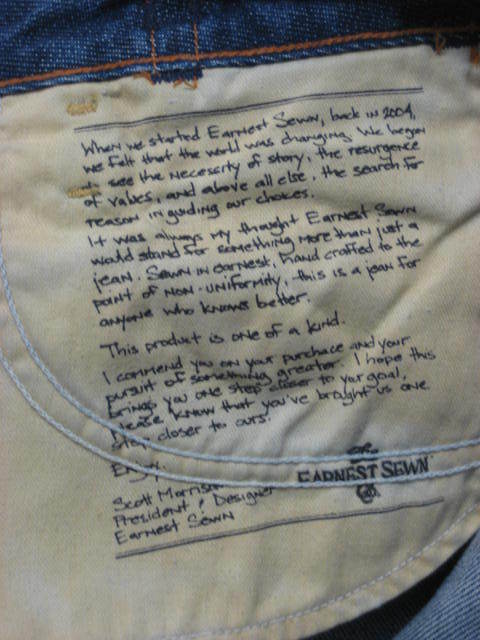 When we started Earnest Sewn, back in 2004,
we felt that the world was changing. We began
to see the necessity of story, the resurgence
of values, and above all else, the search for
reason in guiding our choices.
It was always my thought Earnest Sewn
would stand for something more than just a
jean. Sewn in earnest, hand crafted to the
point of non-uniformity, this is a jean for
anyone who knows better.
This product is one of a kind.
I commend you on your purchase and your
pursuit of something greater. I hope this
brings you one step closer to your goal,
please know that you've brought us one
step closer to ours.
Enjoy,
Scott Morrison
President & Designer
Earnest Sewn
EARNEST SEWN